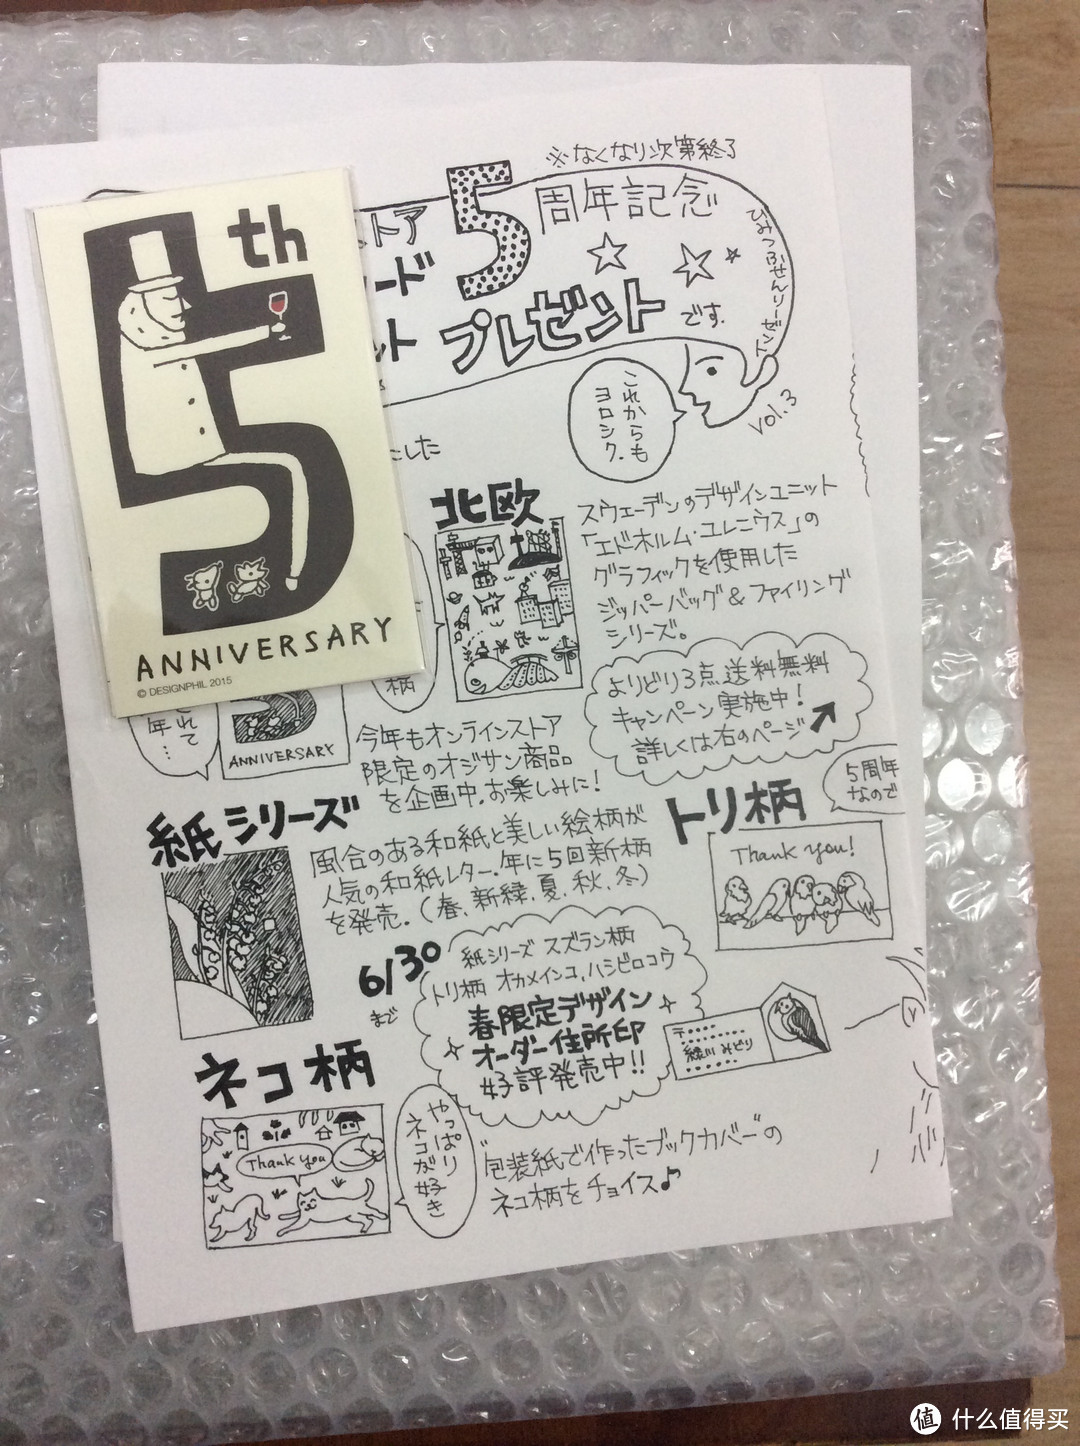 ※なくなり次第終了
ストア
5
周年記念
ード
ット
プレゼント
です.
ひみつぶせんリーゼント
vol.3
これからも
ヨロシク.
5th
ANNIVERSARY
© DESIGNPHIL 2015
にした
北欧
スウェーデンのデザインユニット
「エドホルム・ユレニウス」の
グラフィックを使用した
ジッパーバッグ&ファイリング
シリーズ。
よりどり3点送料無料
キャンペーン実施中!
詳しくは右のページ
柄
されて
年…
ANNIVERSARY
今年もオンラインストア
限定のオジサン商品
を企画中.お楽しみに!
紙シリーズ
風合のある和紙と美しい絵柄が
人気の和紙レター.年に5回新柄
を発売.(春、新緑、夏、秋、冬)
トリ柄
5周年
なので
Thank you!
6/30
まで
紙シリーズ スズラン柄
トリ柄 オカメインコ,ハシビロコウ
春限定デザイン
オーダー住所印
好評発売中!!
〒
緑川 みどり
ネコ柄
Thank you
やっぱり
ネコが好き
"包装紙で作ったブックカバー"の
ネコ柄をチョイス♪
值 什么值得买